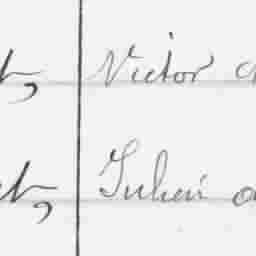 t, Victor
et, Julien